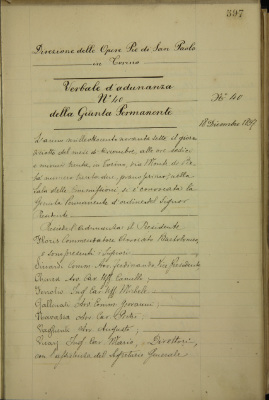 397
Direzione delle Opere Pie di San Paolo
in Torino
Verbale d'adunanza
N° 40
N° 40
della Giunta Permanente
18 Dicembre 1897
L'anno milleottocento novanta sette, il giorno
diciotto del mese di Dicembre, alle ore sedici
e minuti trenta, in Torino, via Monte di Pie-
tà, numero trentadue, primo piano, nella
Sala delle Commissioni, si è convocata la
Giunta Permanente d'ordine del Signor
Presidente
Presiede l'adunanza il Presidente
Commendatore Onorato Bartolomeo,
e sono presenti i Signori
Comm. Avv. Ferdinando Vice Presidente
Avv. Cav. Uff. Camillo
Ing. Cav. Uff. Michele
Avv. Comm. Giovanni
Avv. Cav.
Avv. Augusto
Ing. Cav. Mario, Direttori,
con assistenza del Segretario Generale